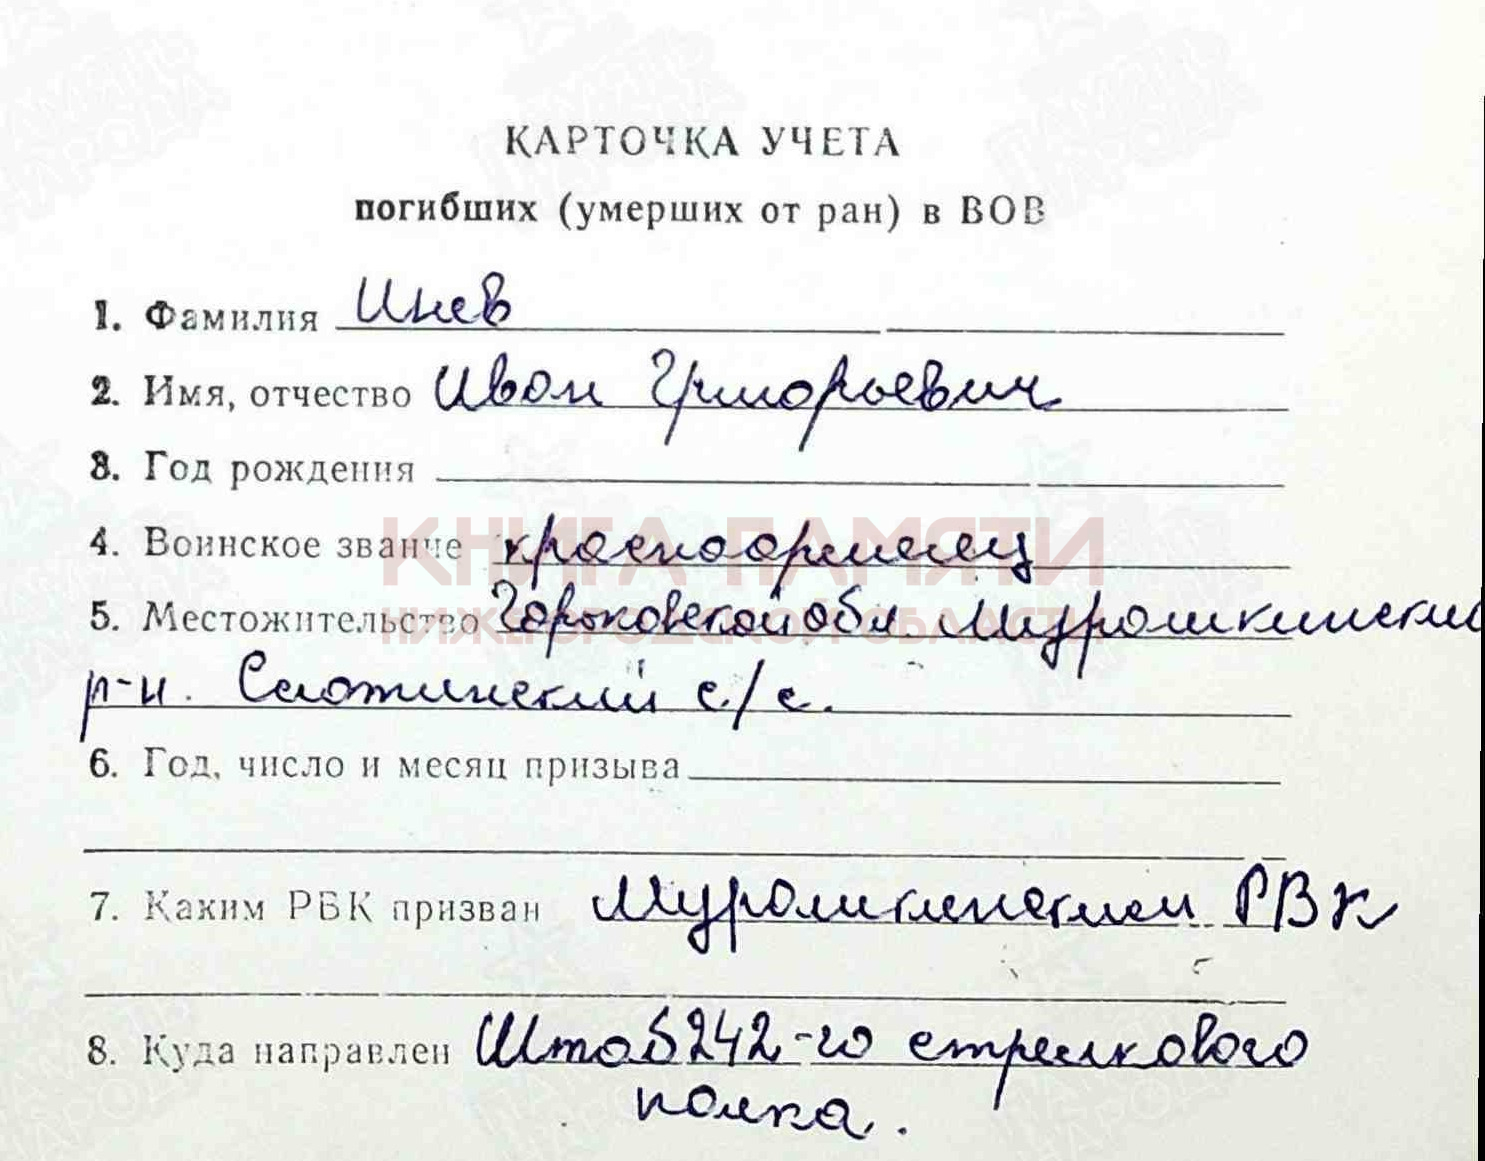 КАРТОЧКА УЧЕТА
погибших (умерших от ран) в ВОВ
1. Фамилия Инев
2. Имя, отчество Иван Григорьевич
3. Год рождения
4. Воинское звание красноармеец
5. Местожительство Горьковской обл. Мурашкинский
р-н. с/с.
6. Год, число и месяц призыва
7. Каким РВК призван Мурашкинским РВК
8. Куда направлен Штаб 242-го стрелкового
полка.
КНИГА ПАМЯТИ
НИЖЕГОРОДСКОЙ ОБЛАСТИ